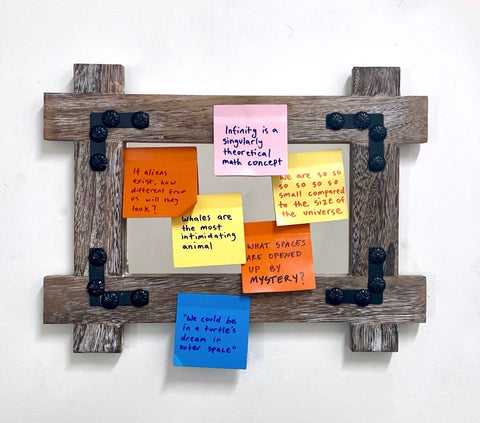 Infinity is a
singularly
theoretical
math concept
If aliens
exist, how
different from
us will they
look?
We are so so
so so so so
small compared
to the size of
the universe
Whales are
the most
intimidating
animal
WHAT SPACES
ARE OPENED
UP BY
MYSTERY?
"We could be
in a turtle's
dream in
outer space"